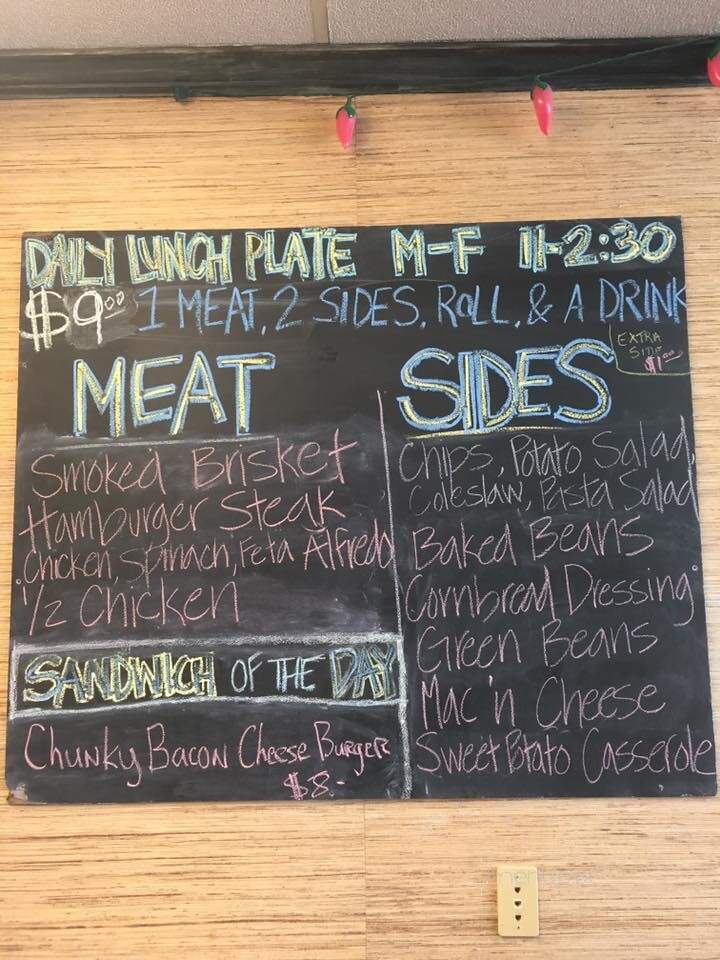 DAILY LUNCH PLATE M-F 11-2:30
$9.00 1 MEAT, 2 SIDES, ROLL, & A DRINK
EXTRA
SIDE
$1.00
MEAT
Smoked Brisket
Hamburger Steak
Chicken, Spinach, Feta Alfredo
1/2 Chicken
SANDWICH OF THE DAY
Chunky Bacon Cheese Burger
$8.-
SIDES
Chips, Potato Salad,
Coleslaw, Pasta Salad
Baked Beans
Cornbread Dressing
Green Beans
Mac 'n Cheese
Sweet Potato Casserole